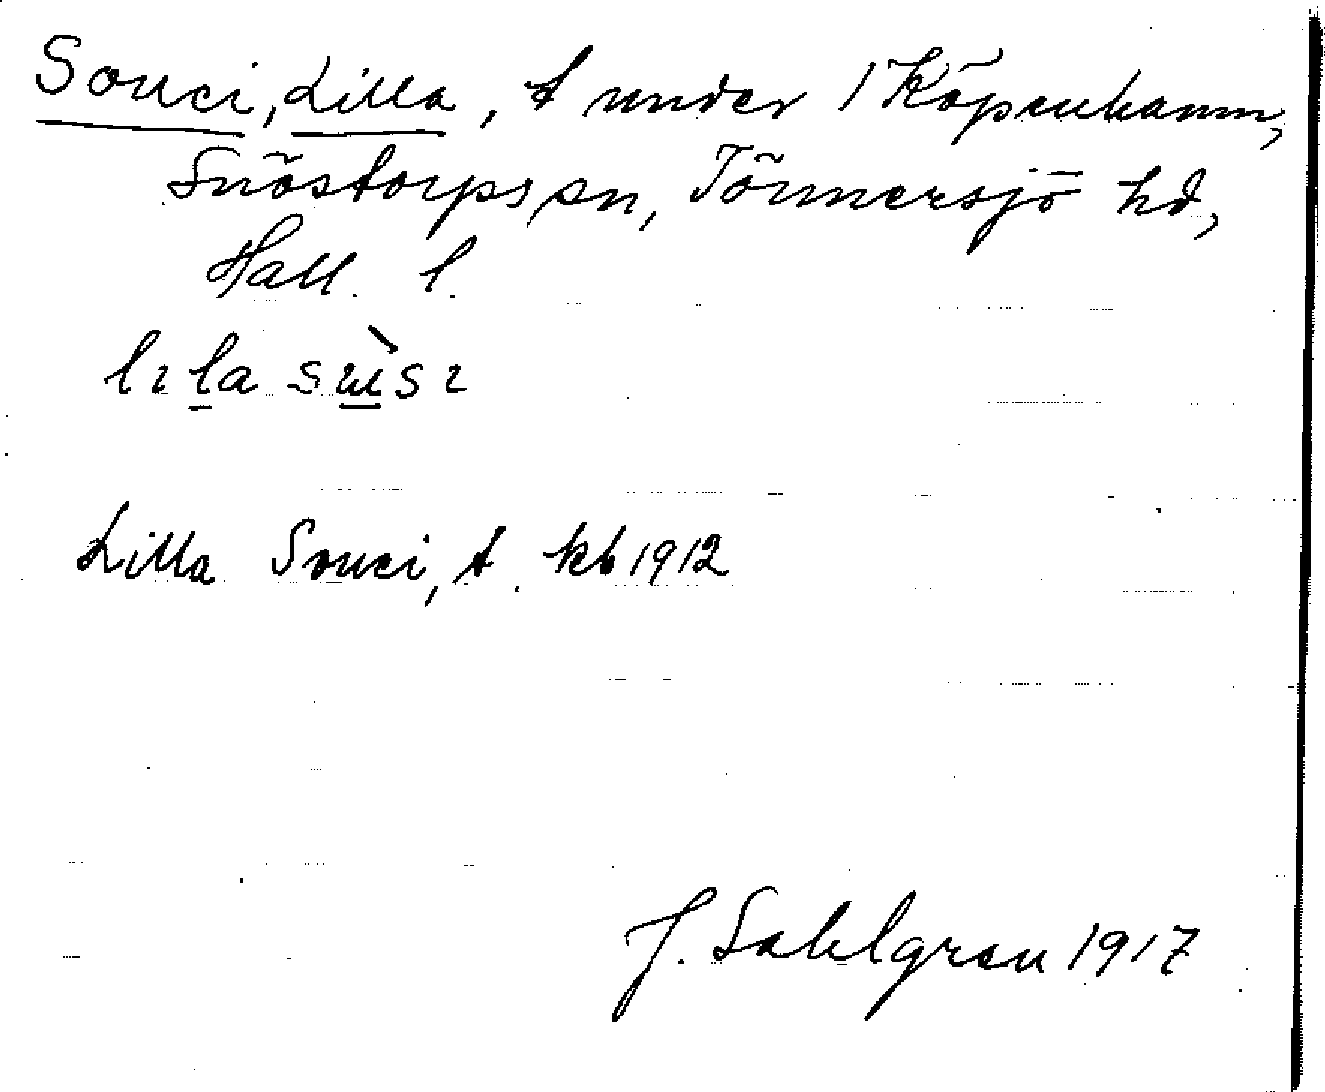 Souci, Lilla, t under 1 Köpenhamn,
Snöstorps sn, Tönnersjö hd,
Hall. l.
lɩla sɯ̀sɩ
Lilla Souci, t. kb 1912
J. Sahlgren 1917